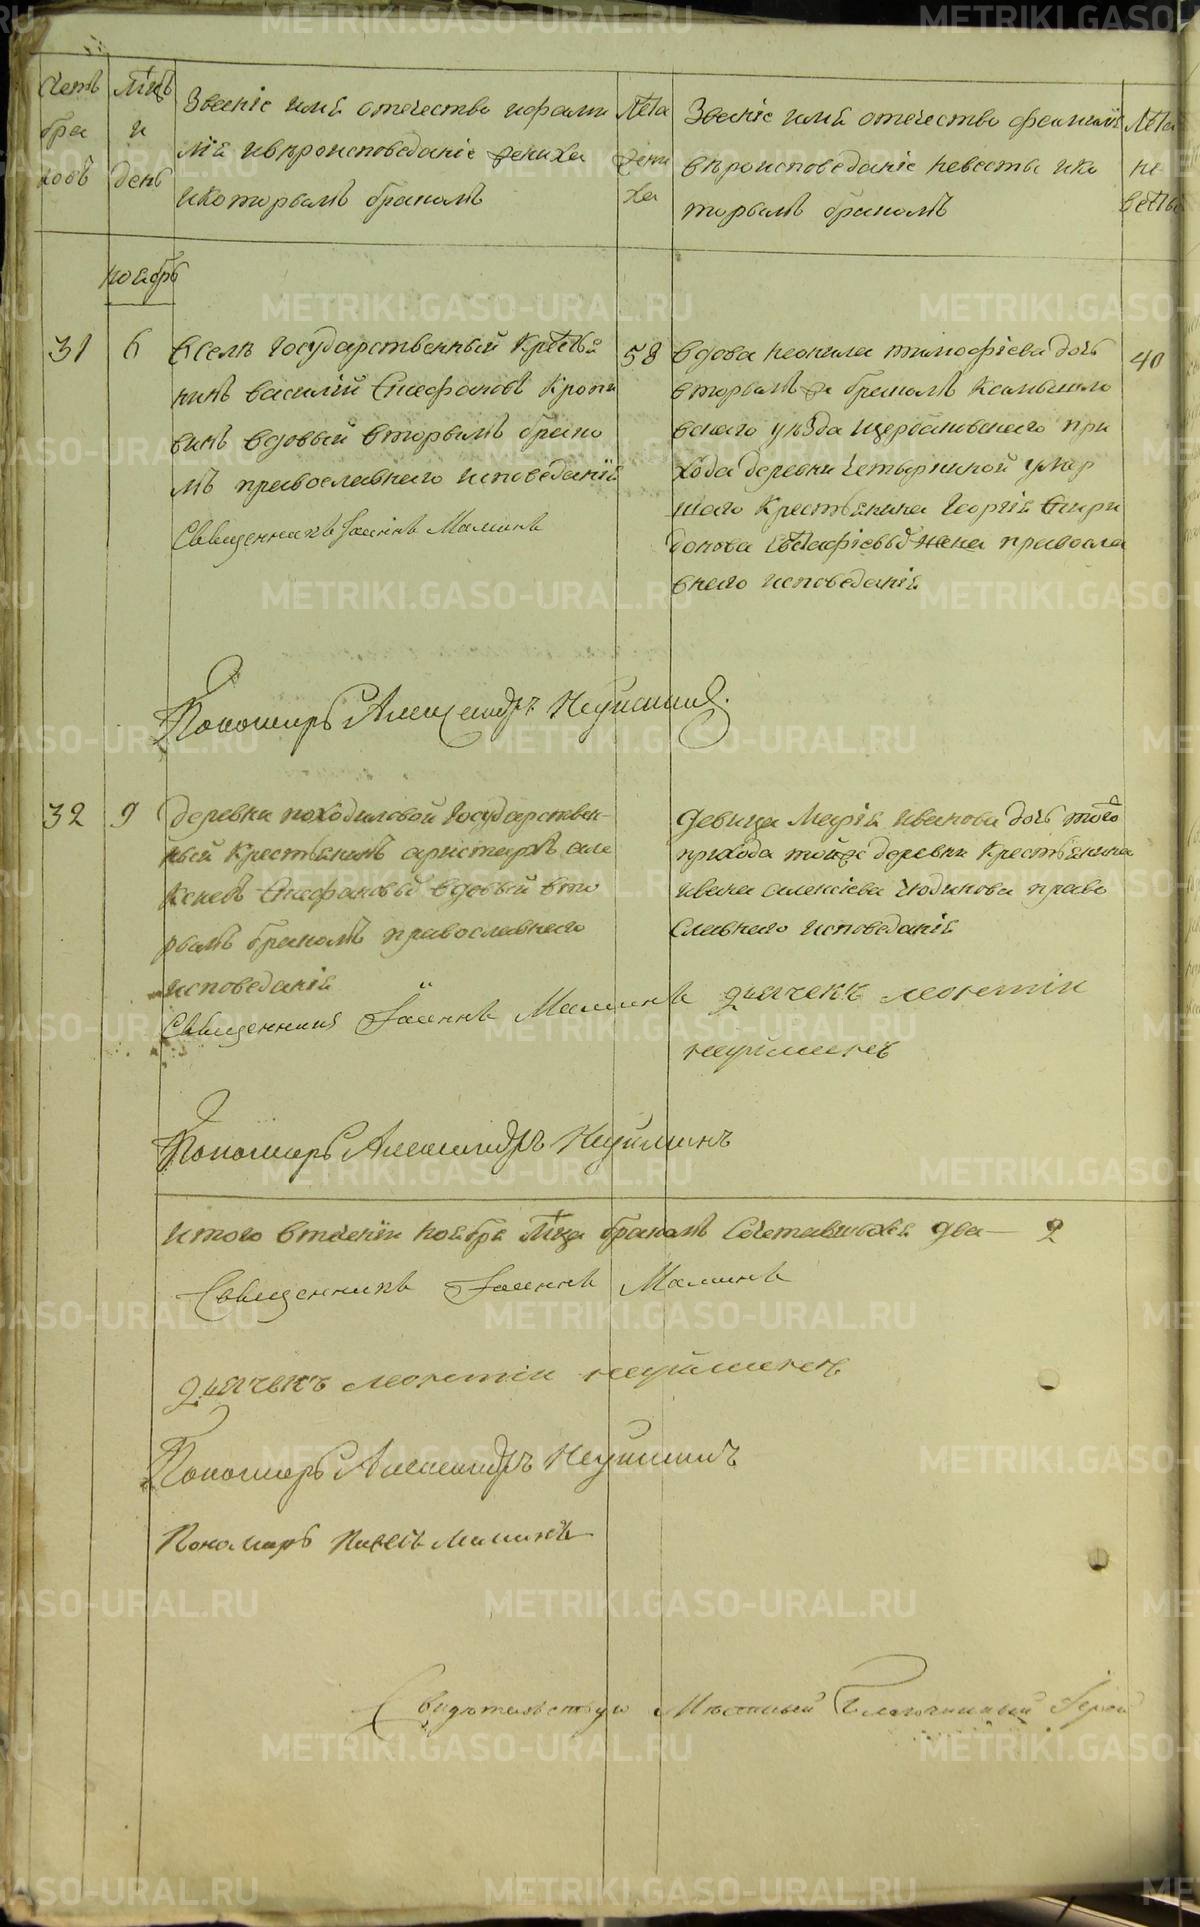 Счетъ
бра
ковъ
Мцъ
и
день
Званіе имя отечество и фами
лія и вѣроисповеданіе жениха
и которымъ бракомъ
Лета
жени
ха
Званіе имя отечество фамилія
вѣроисповеданіе невесты и ко
торымъ бракомъ
Лета
не
весты
ноябрь
31
6
Села Государственный Крестья
нинъ василій Стефановъ Кропи
винъ вдовый вторымъ брако
мъ православнаго исповеданія
Священникъ Іоаннъ Маминъ
58
вдова неонила тимофіева дочь
вторымъ же бракомъ Камышло
вскаго уѣзда щербаковскаго при
хода деревни Четыркиной умер
шаго Крестьянина Георгія Спири
донова Евстафіевыхъ жена правосла
внаго исповеданія
40
Пономарь Александръ Неуйминъ.
32
9
деревни походиловой Государствен-
ный Крестьянинъ аристархъ але
ксеевъ Стефановый вдовый вто
рымъ бракомъ православнаго
исповеданія
Священникъ Іоаннъ Маминъ
девица Марія иванова дочь того
прихода тойже деревни Крестьянина
ивана алексіева Юдинова право
славнаго исповеданія
дьячекъ леонтіи
неуйминъ
Пономарь Александръ Неуйминъ
итого втеченіи ноября Мца браковъ Счетавшихся два — 2
Священникъ Іоаннъ Маминъ
дьячекъ леонтіи неуйминъ
Пономарь Александръ Неуйминъ
Пономарь Павелъ Маминъ
Свидѣтельствую Мѣстный Благочинный Іерей